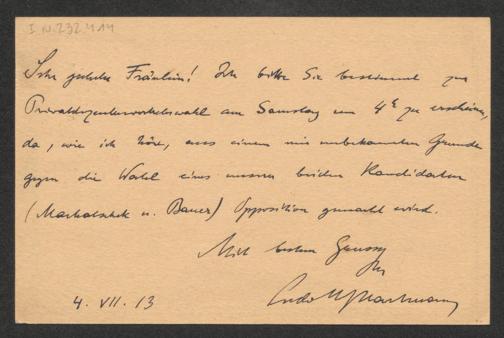 I N. 232.414
Sehr geehrtes Fräulein! Ich bitte Sie bestimmt zur
Privatdozentenwahl am Samstag um 4 h zu erscheinen,
da, wie ich höre, aus einem mir unbekannten Grunde
gegen die Wahl eines unserer beiden Kandidaten
( u. Bauer) Opposition gemacht wird.
Mit bestem Gruss
Ihr
Ludo Hartmann
4. VII. 13